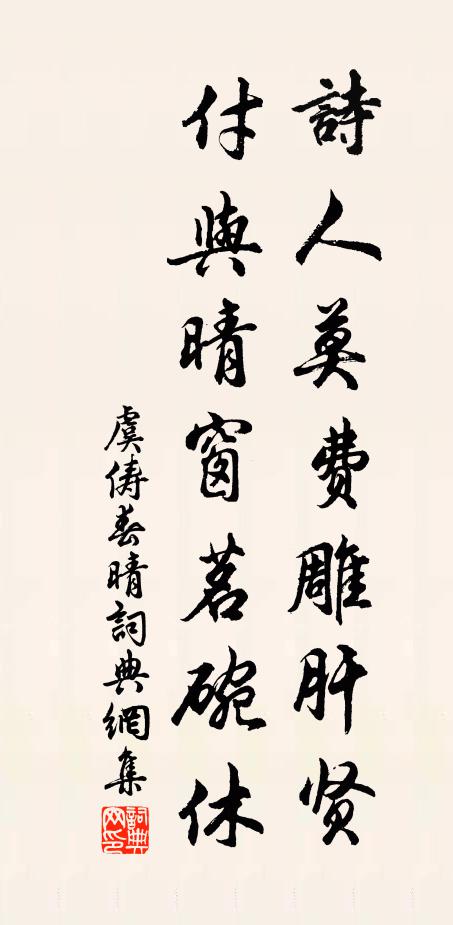 詩人莫費雕肝贤
付與晴窗茗碗休
虞俦春晴詞典網集
詞典網印